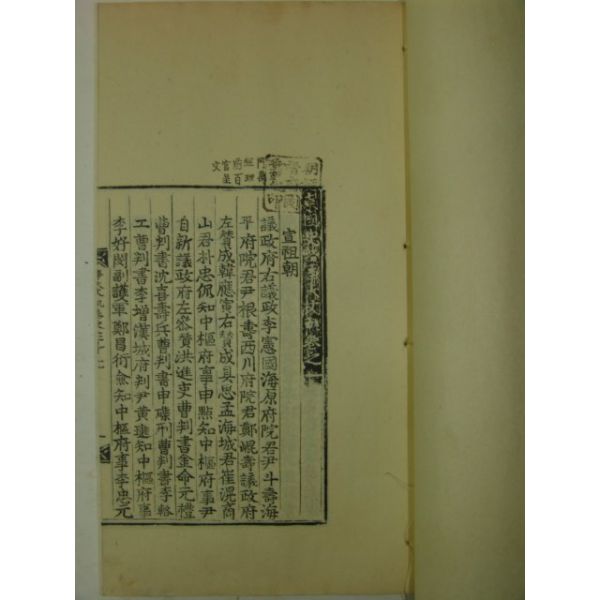 經理
府百
官呈
文
卷之
宣祖朝
議政府右議政李憲國海原府院君尹斗壽海
平府院君尹根壽西川府院君鄭崐壽議政府
左贊成韓應寅右贊成具思孟海城君崔滉商
山君朴忠侃知中樞府事申點知中樞府事尹
自新議政府左參贊洪進吏曹判書金命元禮
曹判書沈喜壽兵曹判書申磼刑曹判書李輅
工曹判書李增漢城府判尹黃璡知中樞府事
李好閔副護軍鄭昌衍僉知中樞府事李忠元